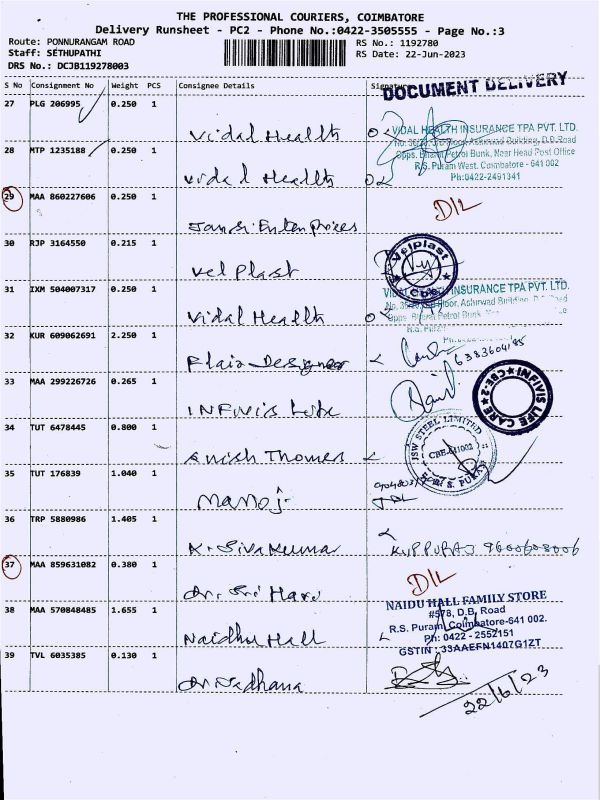 THE PROFESSIONAL COURIERS, COIMBATORE
Delivery Runsheet - PC2 - Phone No.:0422-3505555 - Page No.:3
Route: PONNURANGAM ROAD
RS No.: 1192780
Staff: SETHUPATHI
RS Date: 22-Jun-2023
DRS No.: DCJB119278003
S No Consignment No Weight PCS Consignee Details Signature
DOCUMENT DELIVERY
27 PLG 206995 0.250 1
Vidal Health
VIDAL HEALTH INSURANCE TPA PVT. LTD.
Opps. Bharat Petrol Bunk, Near Head Post Office
R.S. Puram West, Coimbatore - 641 002
Ph:0422-2491341
28 MTP 1235188 0.250 1
Vidal Health
29 MAA 860227606 0.250 1
D/L
30 RJP 3164550 0.215 1
Vel Plast
Velplast
Cbe
31 IXM 504007317 0.250 1
Vidal Health
VIDAL HEALTH INSURANCE TPA PVT. LTD.
32 KUR 609062691 2.250 1
33 MAA 299226726 0.265 1
INFIVIS LIFE CARE CBE-2
34 TUT 6478445 0.800 1
Anish Thomas
JSW STEEL LIMITED
35 TUT 176839 1.040 1
Manoj
36 TRP 5880986 1.405 1
K. Siva Kumar
37 MAA 859631082 0.380 1
Dr. Sri Hari
D/L
38 MAA 570848485 1.655 1
Naidhu Hall
NAIDU HALL FAMILY STORE
#578, D.B. Road
R.S. Puram, Coimbatore-641 002.
Ph: 0422 - 2552151
GSTIN : 33AAEFN1407G1ZT
39 TVL 6035385 0.130 1
Dr Sadhana
22/6/23